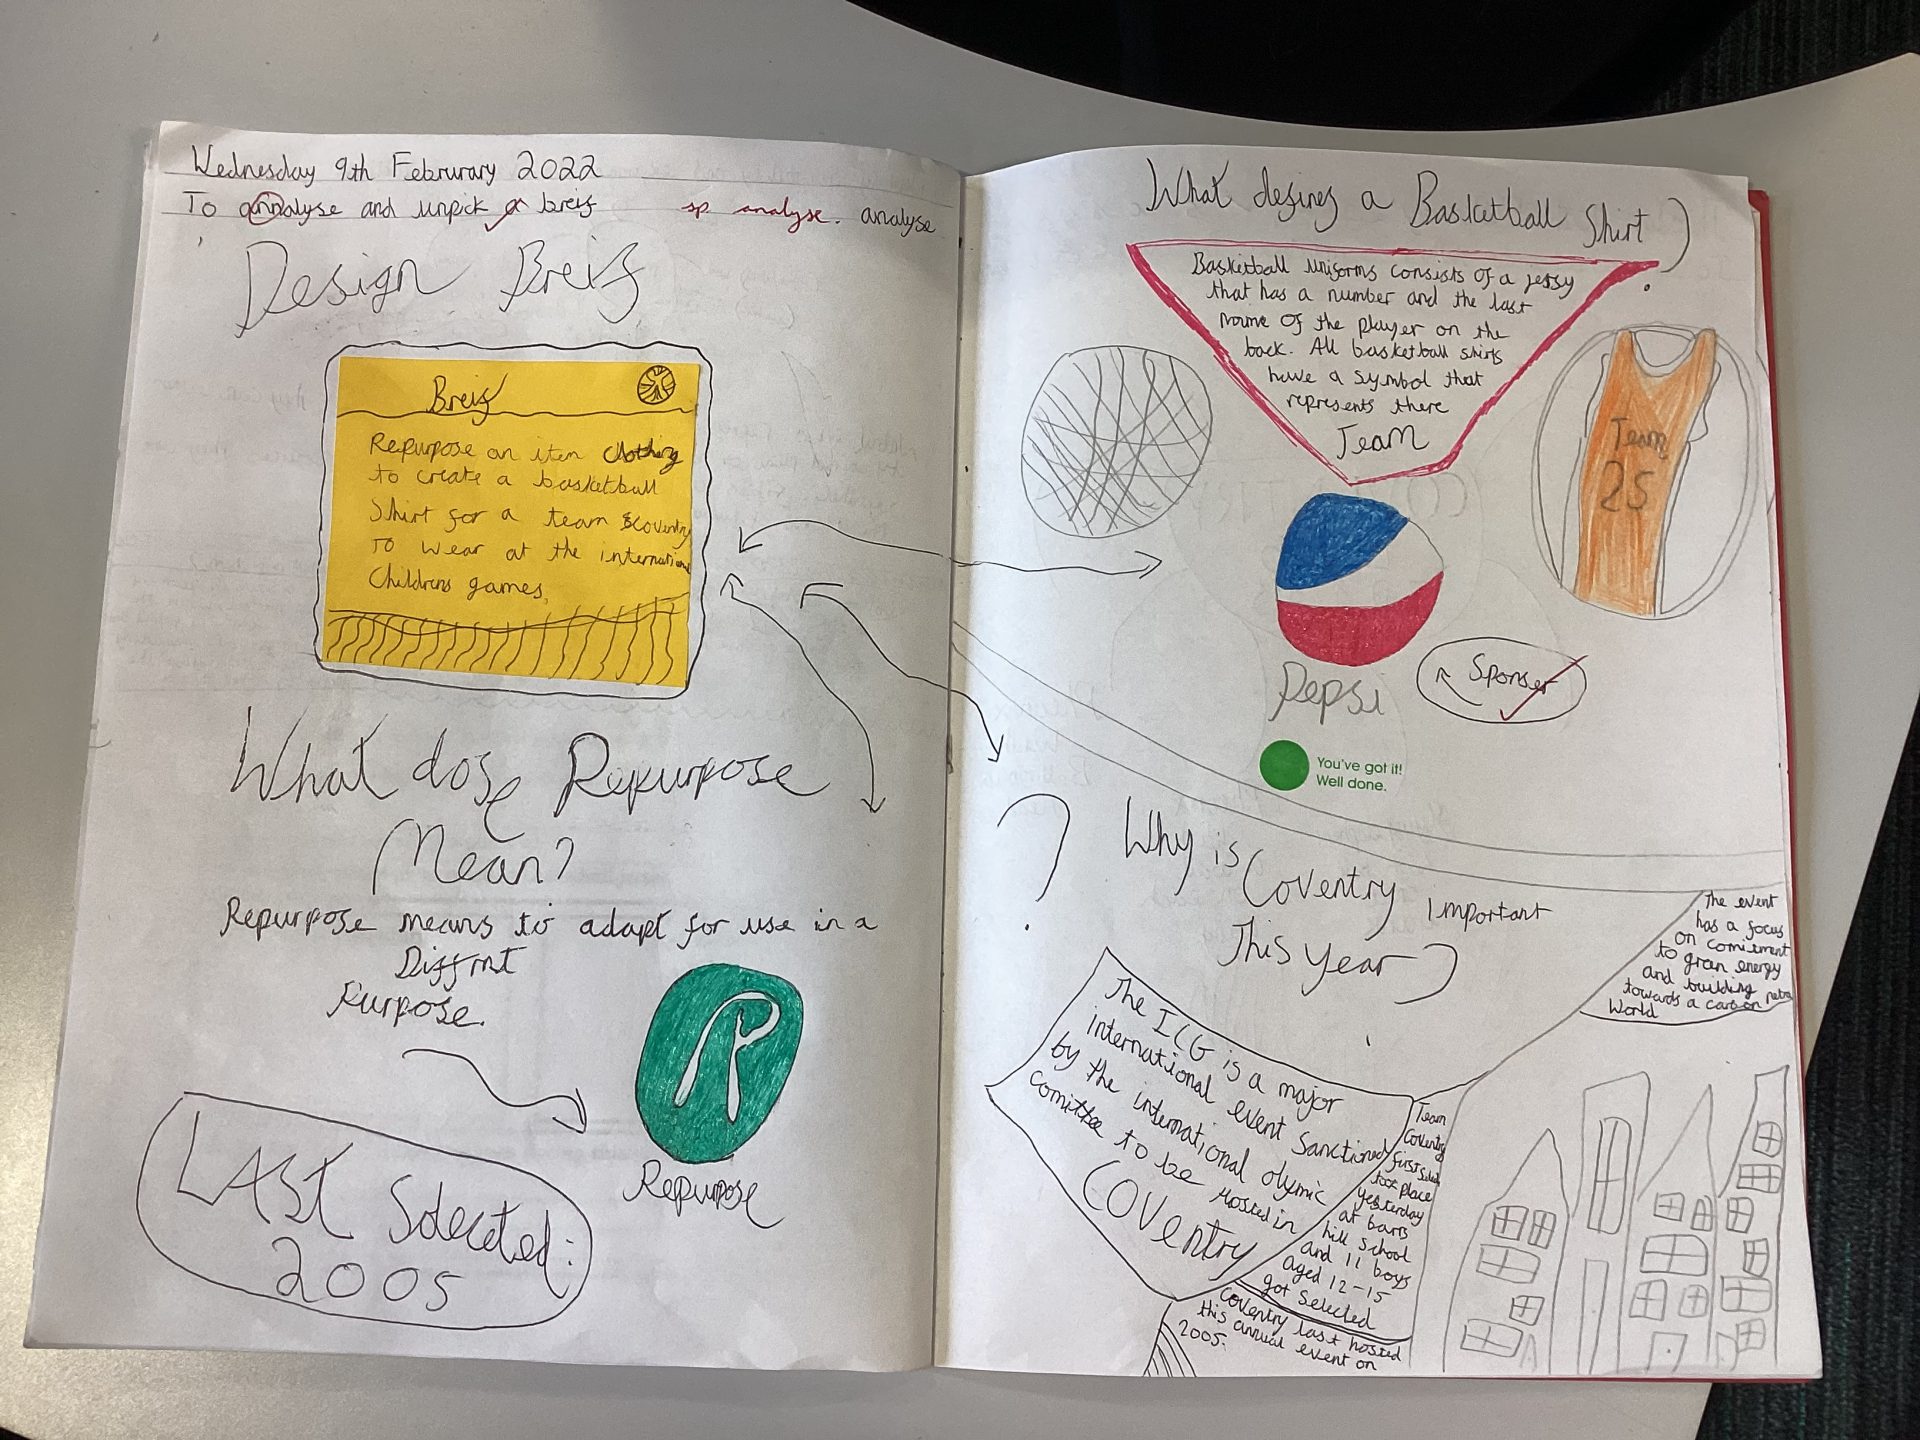 Wednesday 9th Februrary 2022
To annalyse and unpick a breif
sp analyse. analyse
Design Breif
Breif
Repurpose an item clothing
to create a basketball
Shirt for a team Coventry
To wear at the internationa
Childrens games.
What dose Repurpose
Mean?
Repurpose means to adapt for use in a
Diffrnt
Purpose.
R
Repurpose
LAST Selected:
2005
What defines a Basketball Shirt?
Basketball uniforms consists of a jersy
that has a number and the last
name of the player on the
back. All basketball shirts
have a symbol that
represents there
TEAM
Team
25
Pepsi
Sponser
You've got it!
Well done.
?
Why is
Coventry Important
This year?
The event
has a focus
on comiement
to gran energy
and building
towards a carbon netra
World
The ICG is a major
international event Sanctioned
by the international olymic
comittee to be Hosted in
COVentry
Team
Coventry
first
took place
yesterday
at barrs
hill School
and 11 boys
aged 12-15
got selected
Coventry last hosted
this annual event on
2005.